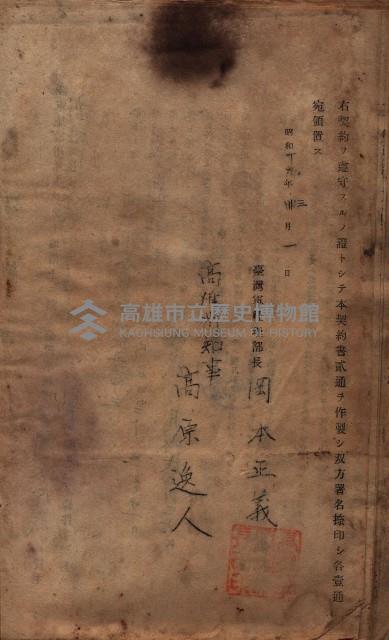 右契約ヲ遵守スルノ證トシテ本契約書貳通ヲ作製シ双方署名捺印シ各壹通
宛領置ス
昭和十六年 三月一日
臺灣軍 部長 岡本正義
高雄 知事 高原逸人
高雄市立歷史博物館
KAOHSIUNG MUSEUM OF HISTORY